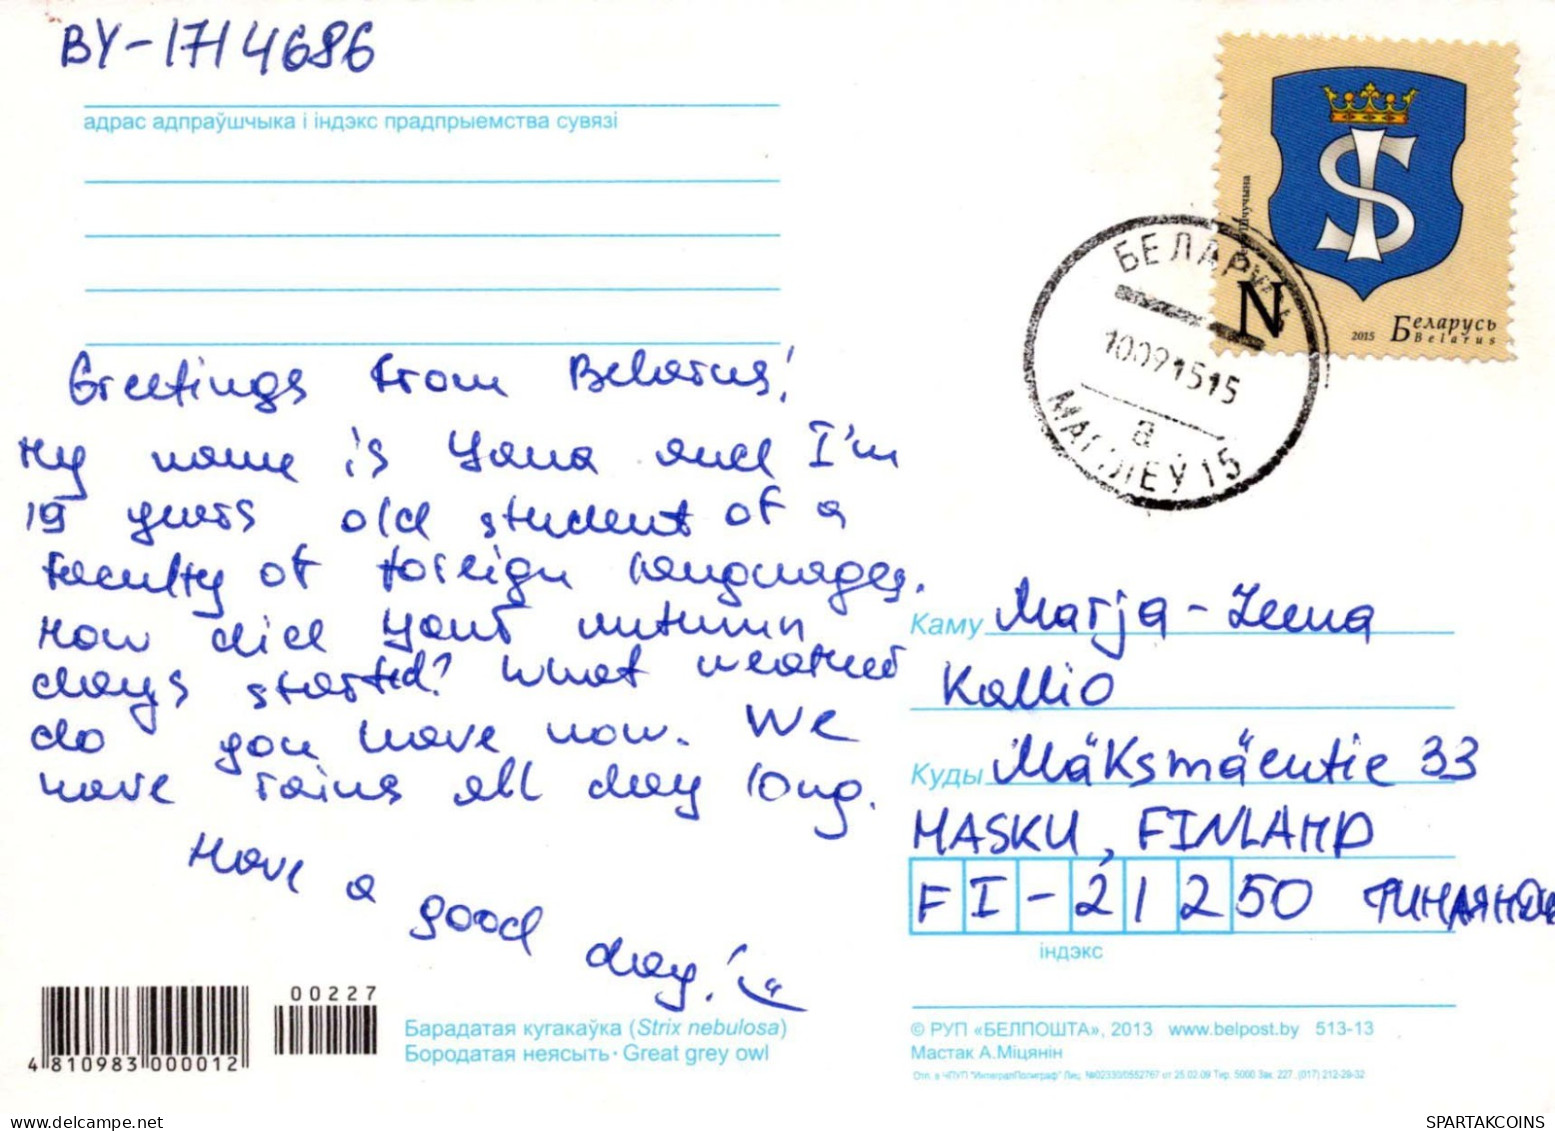 BY-1714686
адрас адпраўшчыка і індэкс прадпрыемства сувязі
N
2015 Беларусь
Belarus
БЕЛАРУСЬ
10.09.15 15
а
МАГІЛЕЎ 15
Greetings from Belarus!
My name is Yana and I'm
19 years old student of a
faculty of foreign languages.
How did your autumn
days started? What weather
do you have now. We
have rains all day long.
Have a good day!
Каму Marja-Leena
Kallio
Куды Mäksmäentie 33
MASKU, FINLAND
FI-21250 ФИНЛЯНДИЯ
індэкс
00227
4 810983 000012
Барадатая кугакаўка (Strix nebulosa)
Бородатая неясыть · Great grey owl
© РУП «БЕЛПОШТА», 2013 www.belpost.by 513-13
Мастак А.Міцянін
Лиц. №02330/0552767 от 25.02.09 Тир. 5000 Зак. 227. (017) 212-29-32
SPARTAKCOINS